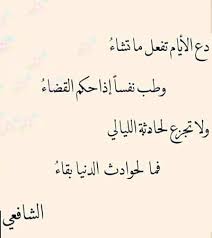 دع الأيام تفعل ما تشاءُ
وطب نفساً إذا حكم القضاءُ
ولا تجزع لحادثة الليالي
فما لحوادث الدنيا بقاءُ
الشافعي